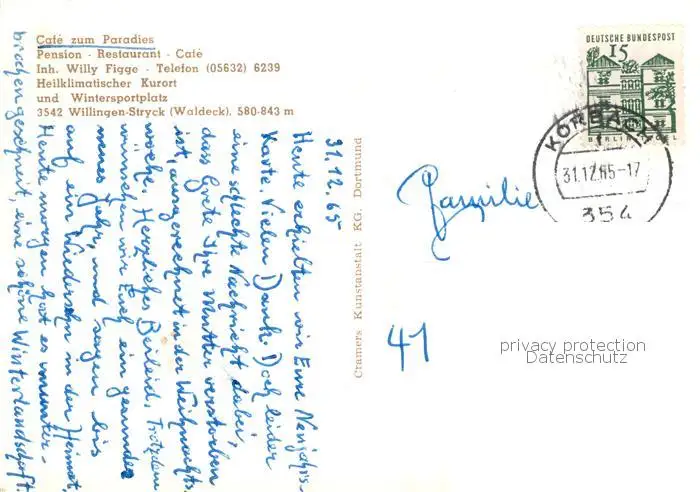 Café zum Paradies
Pension - Restaurant - Café
Inh. Willy Figge - Telefon (05632) 6239
Heilklimatischer Kurort
und Wintersportplatz
3542 Willingen-Stryck (Waldeck), 580-843 m
31.12.65
Heute erhielten wir Eure Neujahrs-
Karte. Vielen Dank. Doch leider
eine schlechte Nachricht dabei,
dass Grete Ihre Mutter verstorben
ist, ausgerechnet in der Weihnachts-
woche. Herzliches Beileid. Trotzdem
wünschen wir Euch ein gesundes
neues Jahr, und sagen bis
auf ein Wiedersehn in der Heimat.
Heute morgen hat es ununter-
brochen geschneit, eine schöne Winterlandschaft.
Cramers Kunstanstalt KG. Dortmund
DEUTSCHE BUNDESPOST
15
BERLIN
KORBACH 1
31.12.65-17
354
Familie
41
privacy protection
Datenschutz